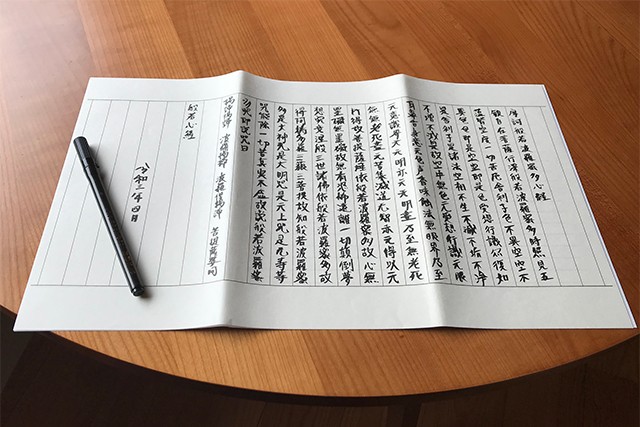 摩訶般若波羅蜜多心経
観自在菩薩行深般若波羅蜜多時照見五
蘊皆空度一切苦厄舎利子色不異空空不
異色色即是空空即是色受想行識亦復如
是舎利子是諸法空相不生不滅不垢不浄
不増不減是故空中無色无受想行識无眼
耳鼻舌身意无色声香味触法無眼界乃至
无意識界无无明亦无无明盡乃至無老死
亦無老死盡无苦集滅道无智亦无得以无
所得故菩提薩埵依般若波羅蜜多故心無
罣礙無罣礙故無有恐怖遠離一切顛倒夢
想究竟涅槃三世諸佛依般若波羅蜜多故
得阿耨多羅三藐三菩提故知般若波羅蜜
多是大神咒是大明咒是无上咒是无等等
咒能除一切苦真実不虚故説般若波羅蜜
多咒即説咒曰
羯諦羯諦 波羅羯諦 波羅僧羯諦 菩提薩婆訶
般若心経
令和二年四月